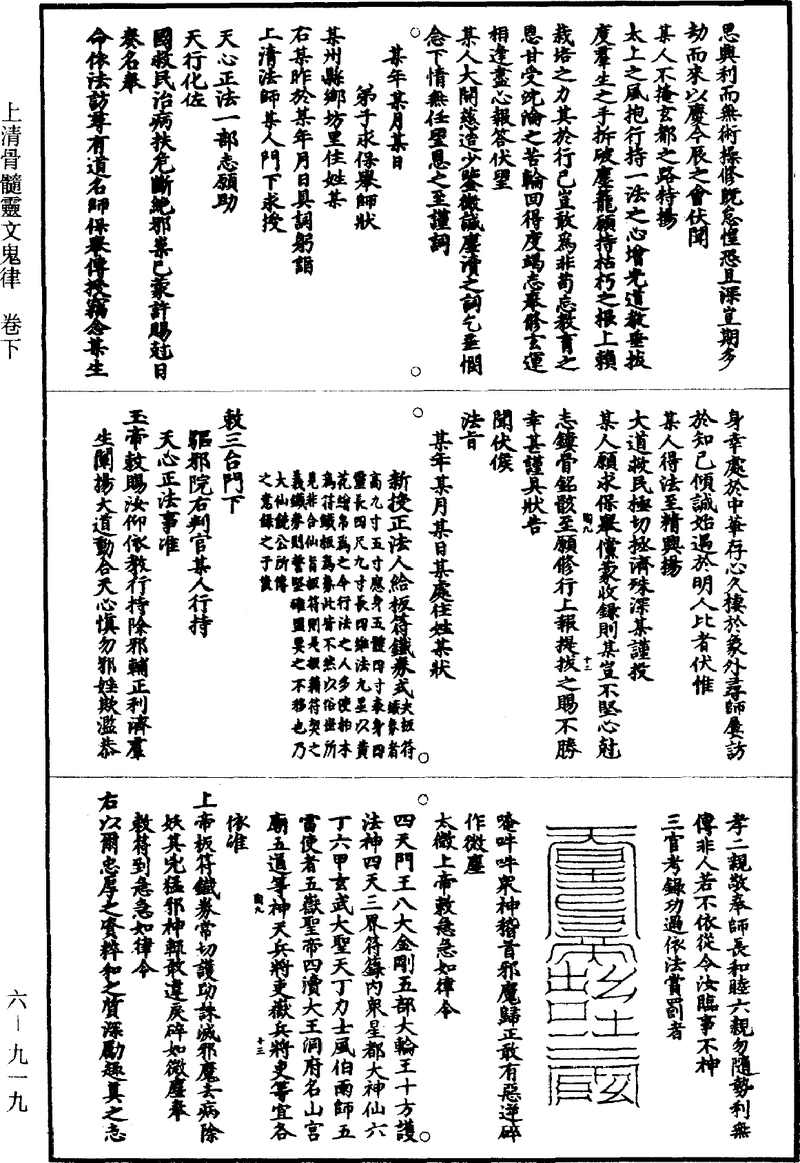 思興利而無術操修既怠惶恐且深豈期多
劫而來以慶今辰之會伏聞
某人不掩玄都之路特揚
太上之風抱行持一法之心增光道教垂拔
度羣生之手拆破塵籠願持枯朽之根上賴
栽培之力其於行己豈敢為非苟忘教育之
恩甘受沈淪之苦輪回得度竭志奉修玄運
相逢盡心報答伏望
某人大開慈造少鑒微誠塵瀆之詞乞垂憫
念下情無任望恩之至謹詞
某年某月某日
弟子求保舉師狀
某州縣鄉坊里住姓某
右某昨於某年月日具詞躬詣
上清法師某人門下求授
天心正法一部志願助
天行化佐
國救民治病扶危斷絕邪祟已蒙許賜尅日
奏名奉
命依法訪尋有道名師保舉傳授竊念某生
身幸處於中華存心久棲於象外尋師屢訪
於知己傾誠始遇於明人比者伏惟
某人得法至精興揚
大道救民極切拯濟殊深某謹投
某人願求保舉儻蒙收錄則某豈不堅心尅
志鏤骨銘骸至願修行上報提拔之賜不勝
幸甚謹具狀告
聞伏候
法旨
某年某月某日某處住姓某狀
新授正法人給板符鐵券式夫板符鐵券者
高九寸五寸應身五體四寸表身四
靈長四尺九寸長四維法九星以黄
花繒帛為之今行法之人多使柏木
為符鐵板為券此皆不然以俗世所
見非合仙旨板符則是板籍符契之
義鐵券則誓堅確盟要之不移也乃
大仙饒公所傳
之意錄之于後
敕三台門下
驅邪院右判官某人行持
天心正法事准
玉帝敕賜汝仰依教行持除邪輔正利濟羣
生闡揚大道動合天心慎勿邪婬欺濫恭
孝二親敬奉師長和睦六親勿隨勢利無
傳非人若不依從令汝臨事不神
三官考錄功過依法賞罰者
唵吽吽衆神稽首邪魔歸正敢有惡逆碎
作微塵
太微上帝敕急急如律令
四天門王八大金剛五部大輪王十方護
法神四天三界符籙内衆星都大神仙六
丁六甲玄武大聖天丁力士風伯雨師五
雷使者五嶽聖帝四瀆大王洞府名山宫
廟五通等神天兵將吏嶽兵將吏等宜各
依准
上帝板符鐵券常切護助誅滅邪魔去病除
妖其兇猛邪神輒敢違戾碎如微塵奉
敕符到急急如律令
右以爾忠厚之資粹和之質深勵趣真之志
上清骨髓靈文鬼律　卷下
六－九一九